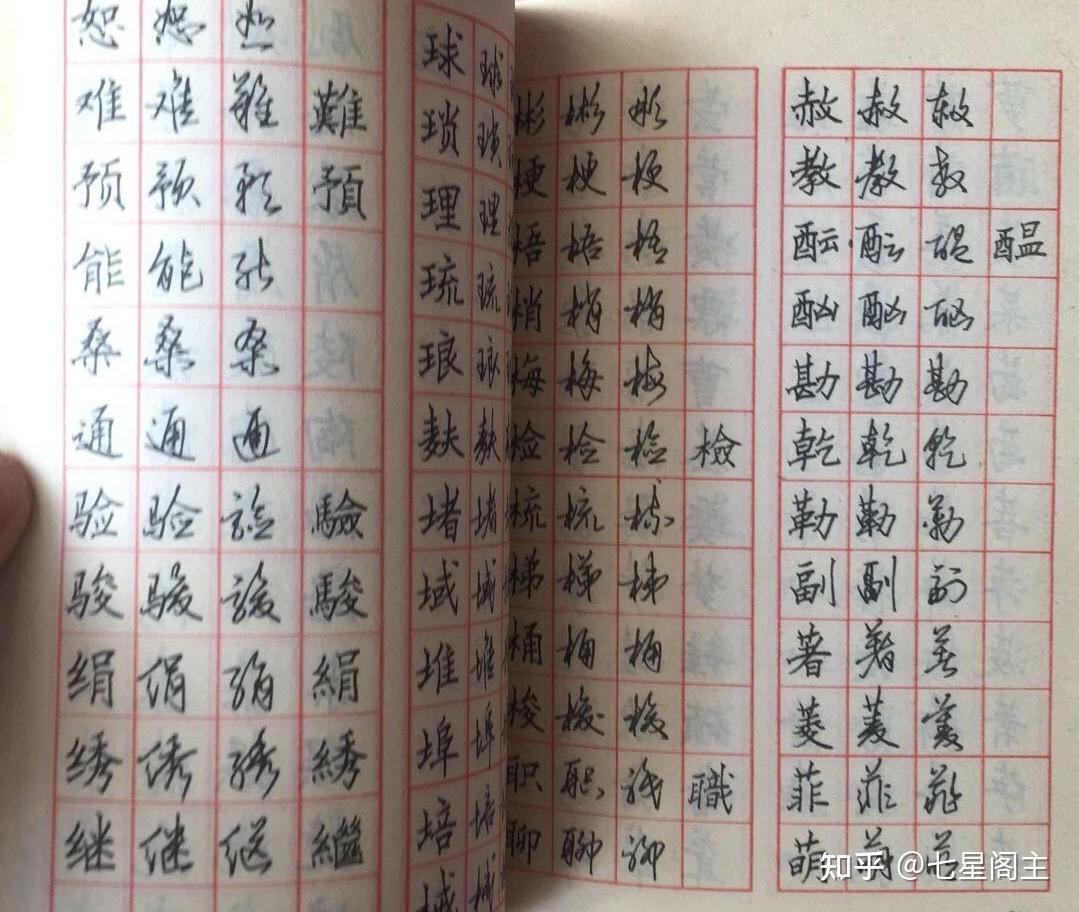 恕 恕 恕
难 难 难 難
预 预 预 預
能 能 能
桑 桑 桑
通 通 通
验 验 验 驗
骏 骏 骏 駿
绢 绢 绢 絹
绣 绣 绣 綉
继 继 继 繼
球 球
琐 琐
理 理
琉 琉
琅 琅
麸 麸
堵 堵
域 域
堆 堆
埠 埠
培 培
域 域
彬 彬 彬
梗 梗 梗
梧 梧 梧
梢 梢 梢
梅 梅 梅
检 检 检 檢
梳 梳 梳
梯 梯 梯
桶 桶 桶
梭 梭 梭
职 职 职 職
聊 聊 聊
赦 赦 赦
教 教 教
酝 酝 酝 醖
酗 酗 酗
勘 勘 勘
乾 乾 乾
勒 勒 勒
副 副 副
著 著 著
菱 菱 菱
菲 菲 菲
萌 萌 萌
知乎 @七星阁主